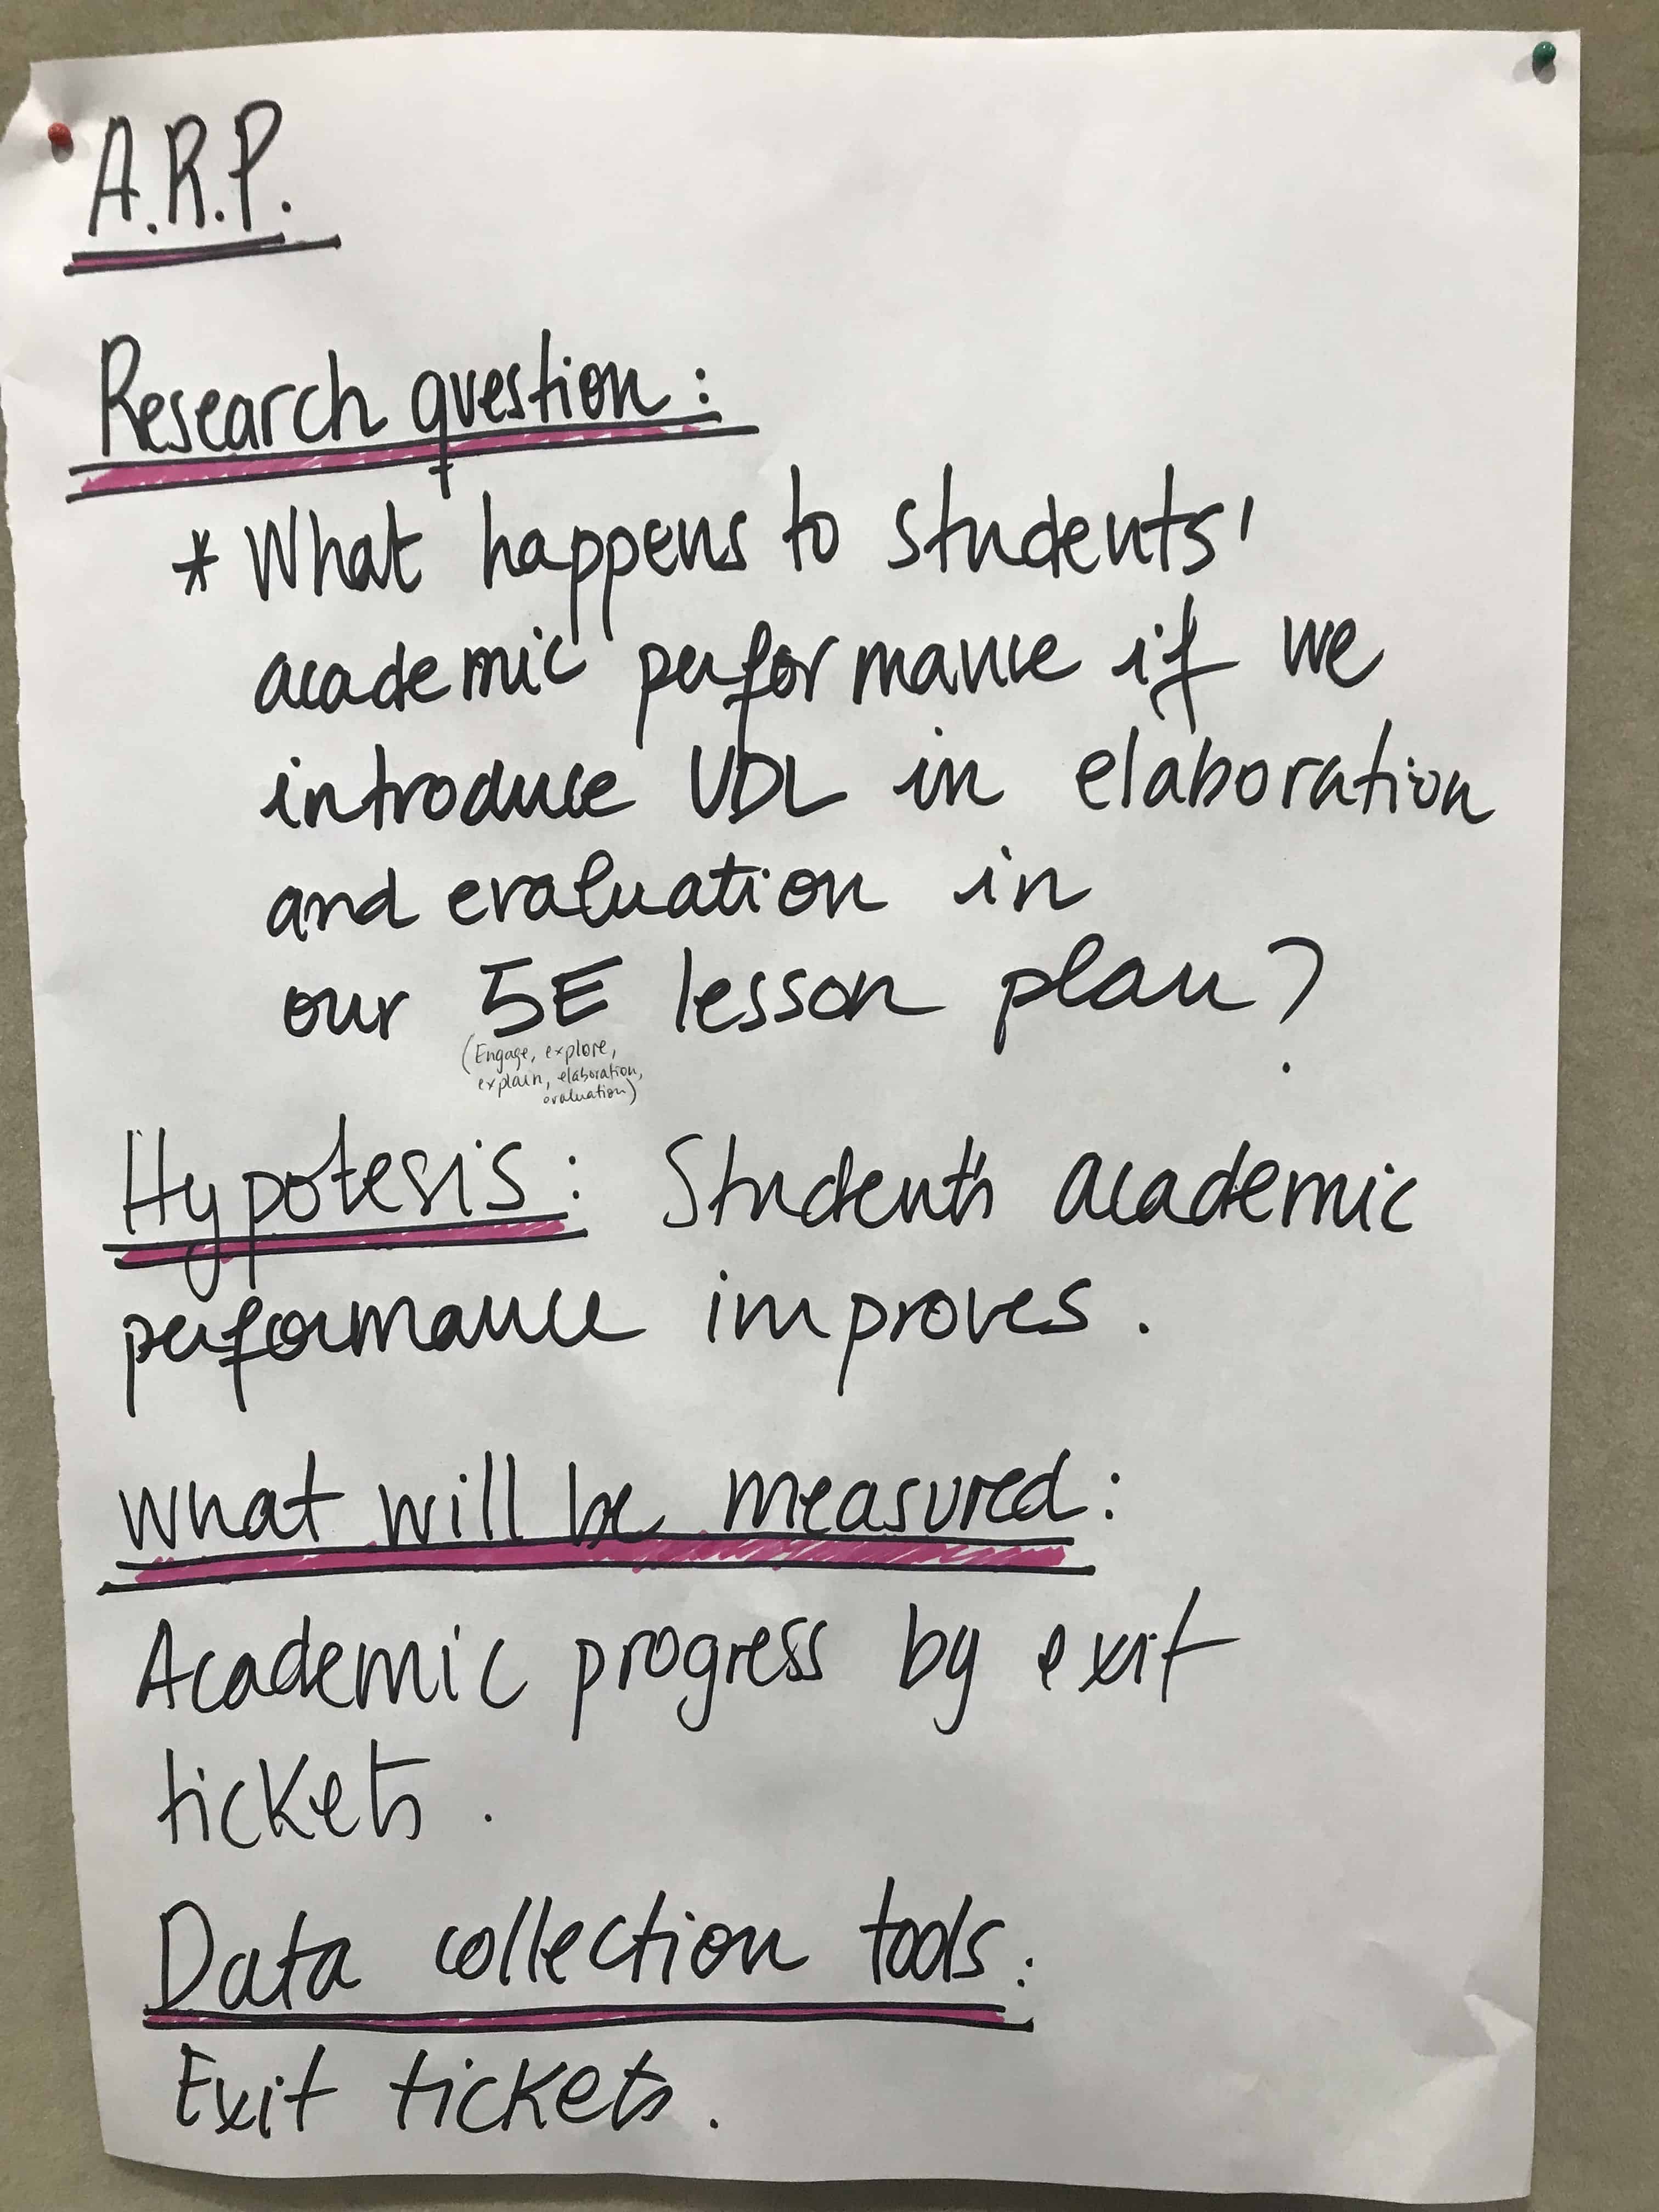 A.R.P.
Research question:
* What happens to students'
academic performance if we
introduce UDL in elaboration
and evaluation in
our 5E lesson plan?
(Engage, explore,
explain, elaboration,
evaluation)
Hypotesis: Student's academic
performance improves.
What will be measured:
Academic progress by exit
tickets.
Data collection tools:
Exit tickets.